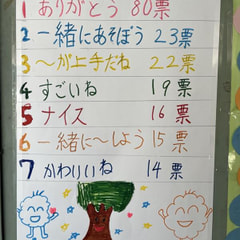 1 ありがとう 80票
2 一緒にあそぼう 23票
3 〜が上手だね 22票
4 すごいね 19票
5 ナイス 16票
6 一緒に〜しよう 15票
7 かわいいね 14票